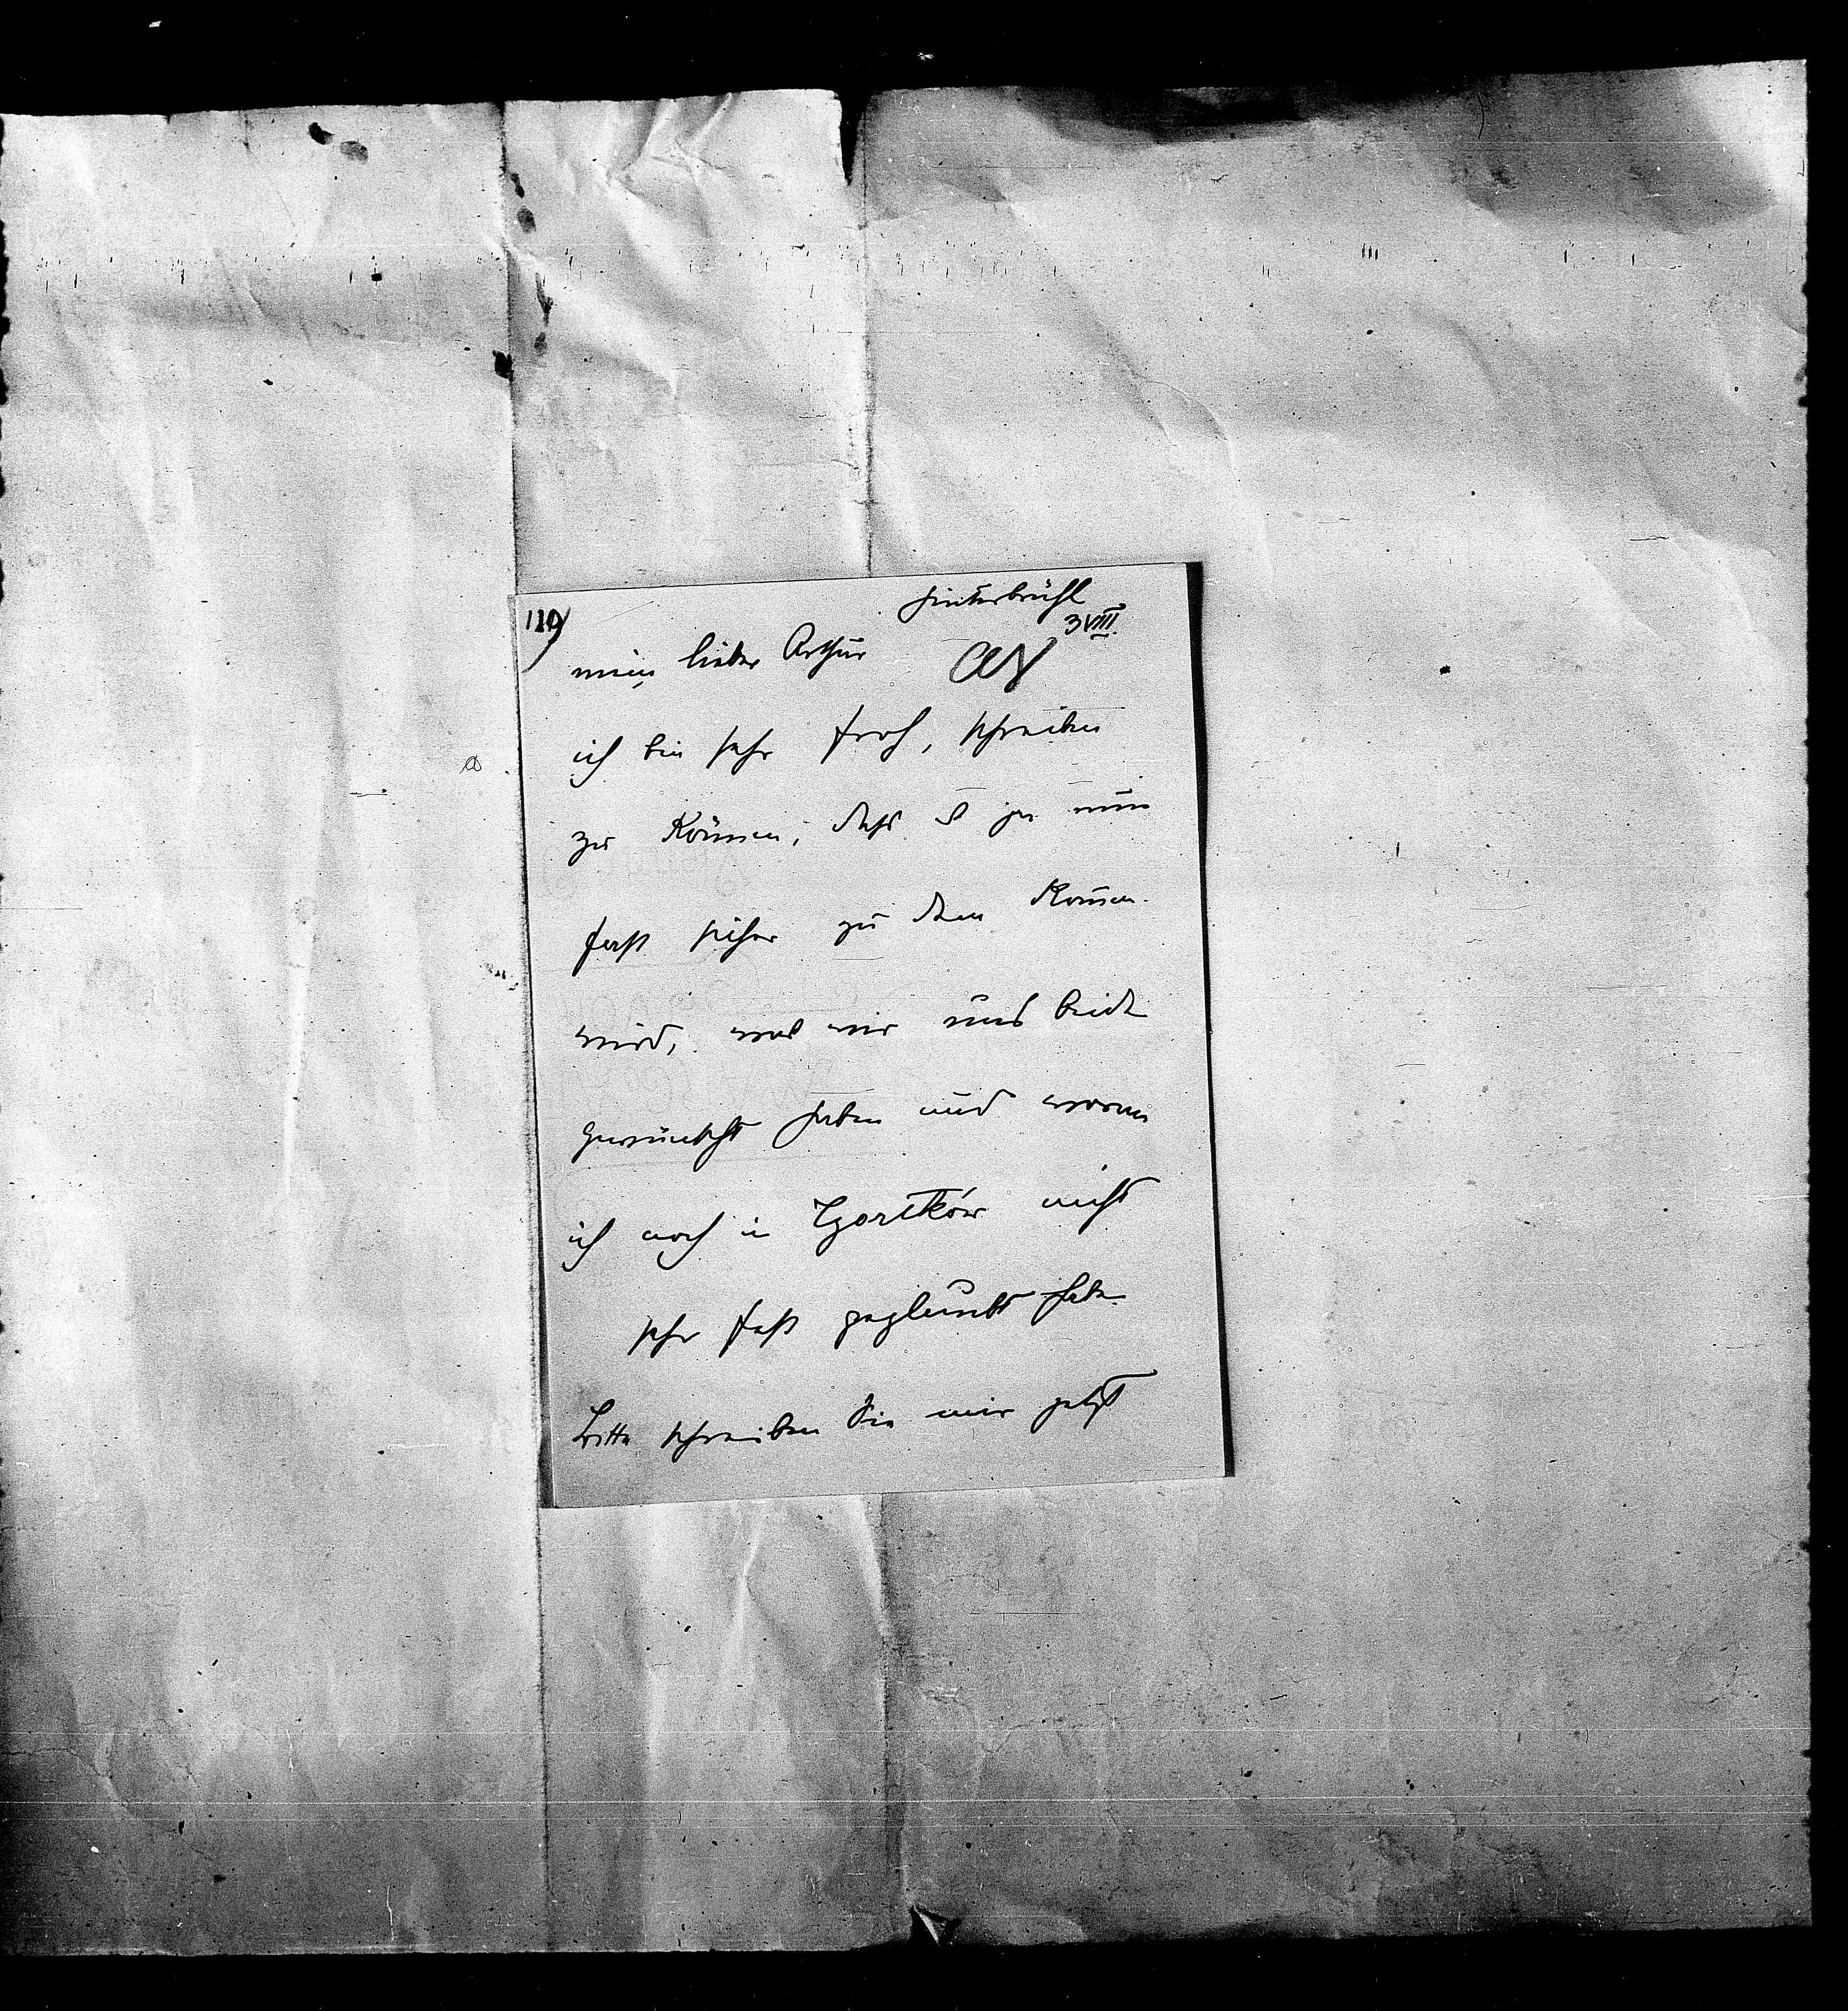 119)
Hinterbrühl
3 VIII.
mein lieber Arthur
ich bin sehr froh, schreiben
zu können, dass es ja nun
fast sicher zu dem kommen
wird, was wir uns beide
gewünscht haben und woran
ich noch in Czortków nicht
sehr fest geglaubt habe.
Bitte schreiben Sie mir jetzt